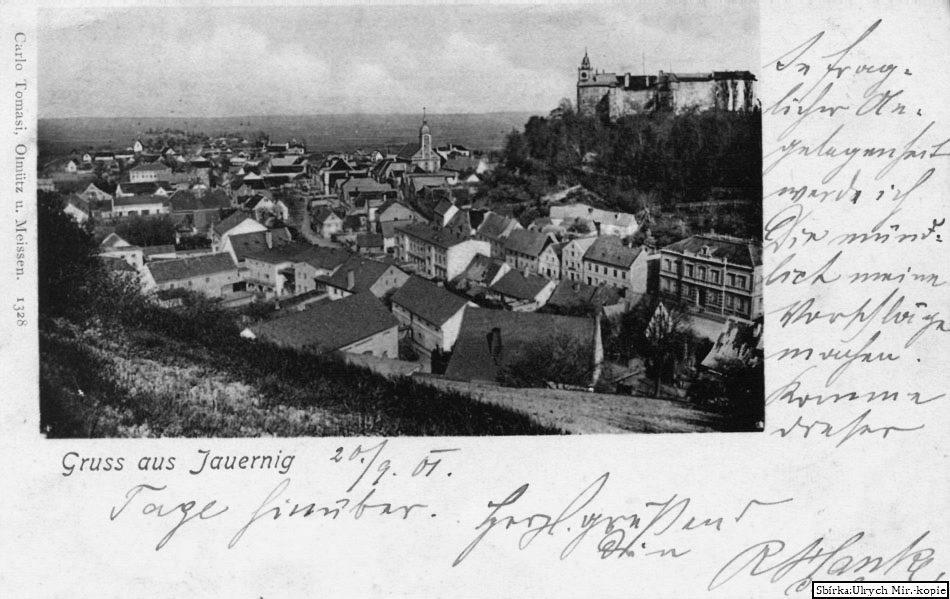 Carlo Tomasi, Olmütz u. Meissen. 1328
In frag-
licher An-
gelegenheit
werde ich
Dir münd-
lich meine
Vorschläge
machen.
Komme
dieser
Gruss aus Jauernig 20./9. 01.
Tage hinüber. Herzl. grüßend
Dein
R Hanke
Sbírka:Ulrych Mir.-kopie